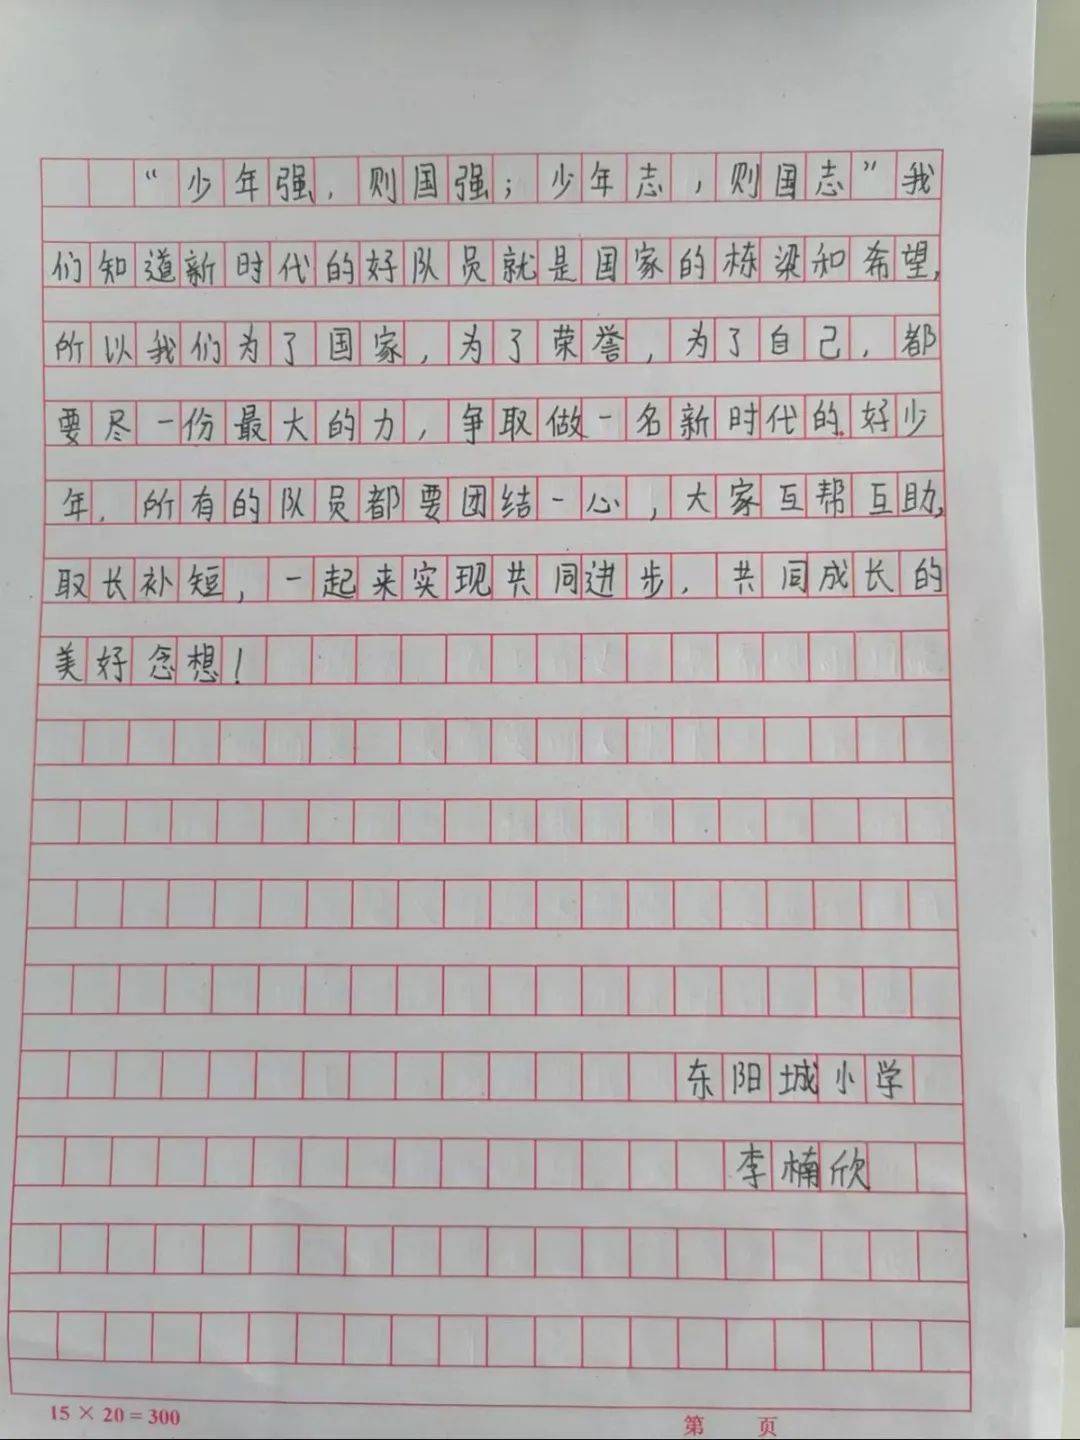 “少年强，则国强；少年志，则国志”我
们知道新时代的好队员就是国家的栋梁和希望，
所以我们为了国家，为了荣誉，为了自己，都
要尽一份最大的力，争取做一名新时代的好少
年．所有的队员都要团结一心，大家互帮互助，
取长补短，一起来实现共同进步．共同成长的
美好念想！
东阳城小学
李楠欣
15×20=300
第 页